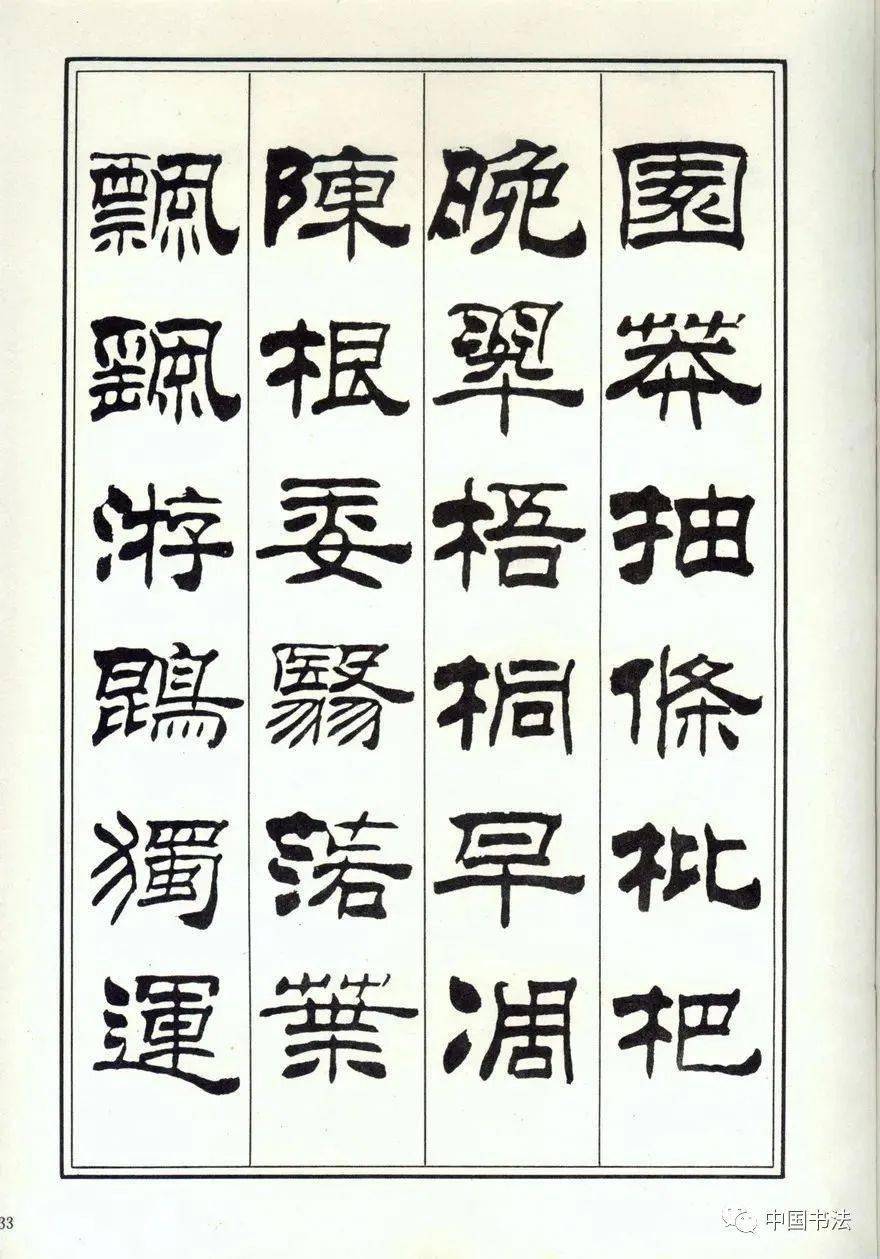 園莽抽條枇杷
晚翠梧桐早凋
陳根委翳落葉
飄颻游鵾獨運
33
中国书法